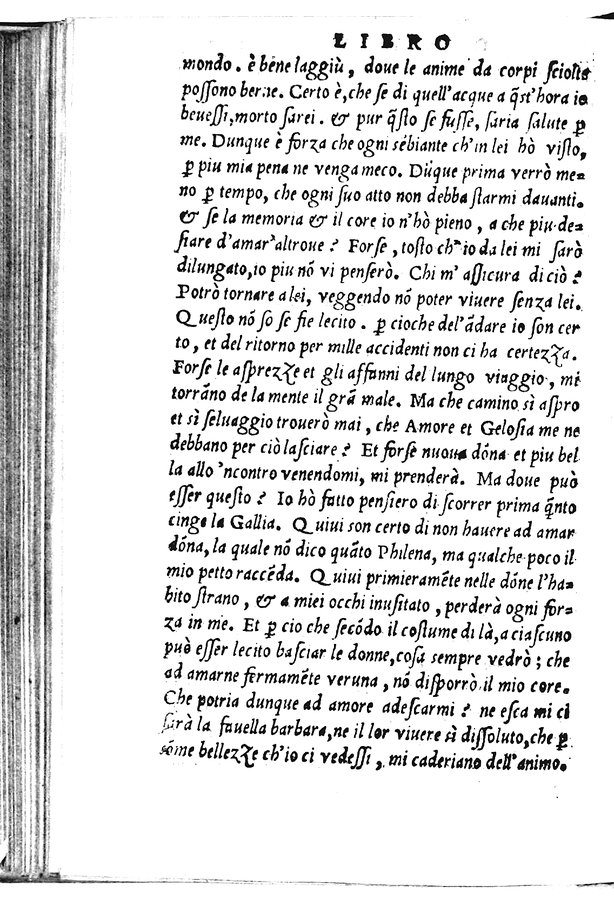 LIBRO
mondo. è bene laggiù, doue le anime da corpi ſciolte
poſſono berne. Certo è, che ſe di quell'acque a q̃st'hora io
beueſſi, morto ſarei. & pur q̃ſto ſe fuſſe, ſaria ſalute ꝑ
me. Dunque è forza che ogni sẽbiante ch'in lei hò viſto,
ꝑ piu mia pena ne venga meco. Dũque prima verrò me-
no ꝑ tempo, che ogni ſuo atto non debba ſtarmi dauanti.
& ſe la memoria & il core io n'hò pieno, a che piu de-
ſiare d'amar'altroue? Forſe, toſto ch'io da lei mi ſarò
dilungato, io piu nõ vi penſerò. Chi m'aſſicura di ciò?
Potrò tornare a lei, veggendo nõ poter viuere ſenza lei.
Queſto nõ ſo ſe fie lecito. ꝑ cioche del'ãdare io ſon cer
to, et del ritorno per mille accidenti non ci ha certezza.
Forſe le aſprezze et gli affanni del lungo viaggio, mi
torrãno de la mente il grã male. Ma che camino sì aſpro
et sì ſeluaggio trouerò mai, che Amore et Geloſia me ne
debbano per ciò laſciare? Et forſe nuoua dõna et piu bel
la allo 'ncontro venendomi, mi prenderà. Ma doue può
eſſer queſto? Io hò fatto penſiero di ſcorrer prima q̃nto
cinge la Gallia. Quiui son certo di non hauere ad amar
dõna, la quale nõ dico quãto Philena, ma qualche poco il
mio petto raccẽda. Quiui primieramẽte nelle dõne l'ha-
bito ſtrano, & a miei occhi inuſitato, perderà ogni for-
za in me. Et ꝑ cio che ſecõdo il coſtume di là, a ciaſcuno
può eſſer lecito baſciar le donne, coſa sempre vedrò; che
ad amarne fermamẽte veruna, nõ diſporrò il mio core.
Che potria dunque ad amore adeſcarmi? ne eſca mi ci
ſarà la fauella barbara, ne il lor viuere sì diſſoluto, che ꝑ
sõme bellezze ch'io ci vedeſſi, mi caderiano dell'animo.